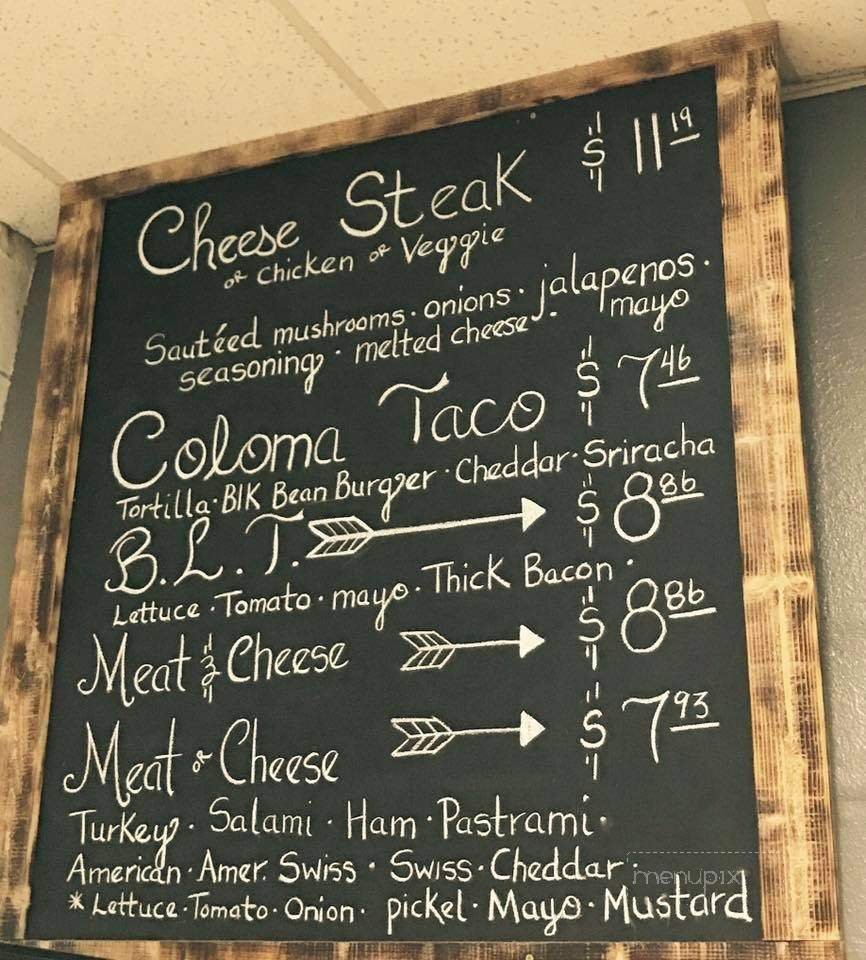 Cheese Steak $ 11 19
or Chicken or Veggie
Sautéed mushrooms · onions · jalapenos ·
seasoning · melted cheese · mayo
Coloma Taco $ 7 46
Tortilla · Blk Bean Burger · Cheddar · Sriracha
B.L.T. $ 8 86
Lettuce · Tomato · mayo · Thick Bacon ·
Meat & Cheese $ 8 86
Meat or Cheese $ 7 93
Turkey · Salami · Ham · Pastrami ·
American · Amer. Swiss · Swiss · Cheddar ·
menupix
* Lettuce · Tomato · Onion · pickel · Mayo · Mustard